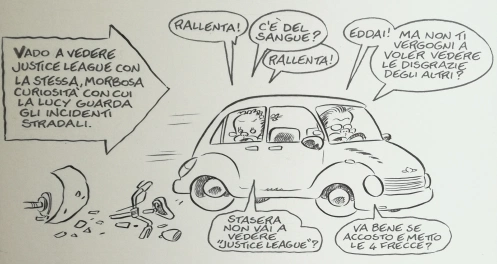 VADO A VEDERE
JUSTICE LEAGUE CON
LA STESSA, MORBOSA
CURIOSITÀ CON CUI
LA LUCY GUARDA
GLI INCIDENTI
STRADALI.
RALLENTA!
C'È DEL
SANGUE?
RALLENTA!
EDDAI!
MA NON TI
VERGOGNI A
VOLER VEDERE
LE DISGRAZIE
DEGLI ALTRI?
STASERA
NON VAI A
VEDERE
"JUSTICE LEAGUE"?
VA BENE SE
ACCOSTO E METTO
LE 4 FRECCE?